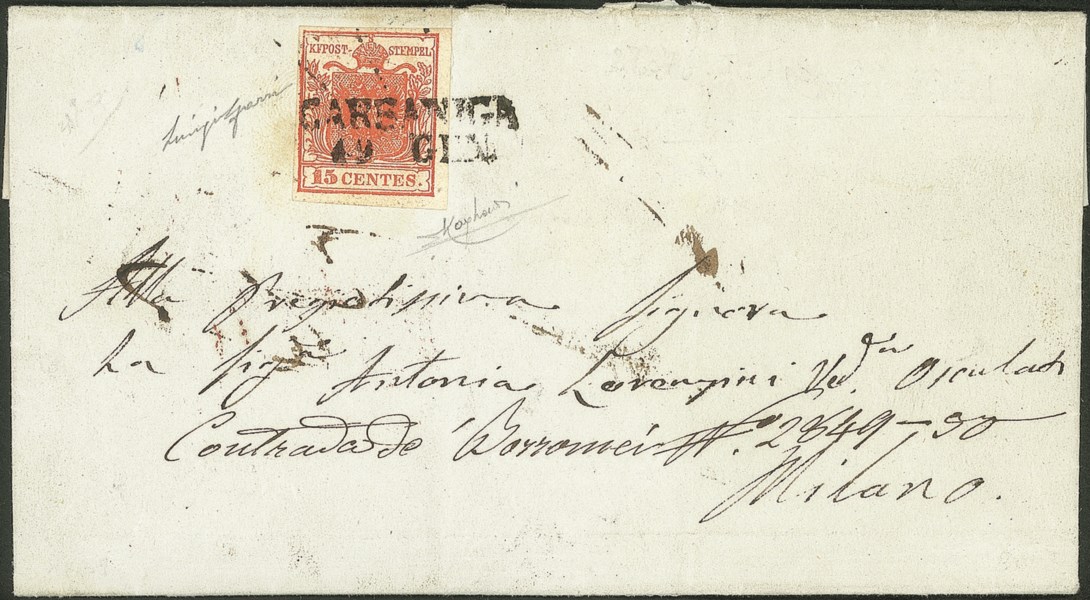 KKPOST-STEMPEL
CARSANIGA
19 GEN
15 CENTES.
Alla Pregiatissima Signora
La Sigra Antonia Lorenzini Ved.a Osculati
Contrada de' Borromei No. 2849-50
Milano.